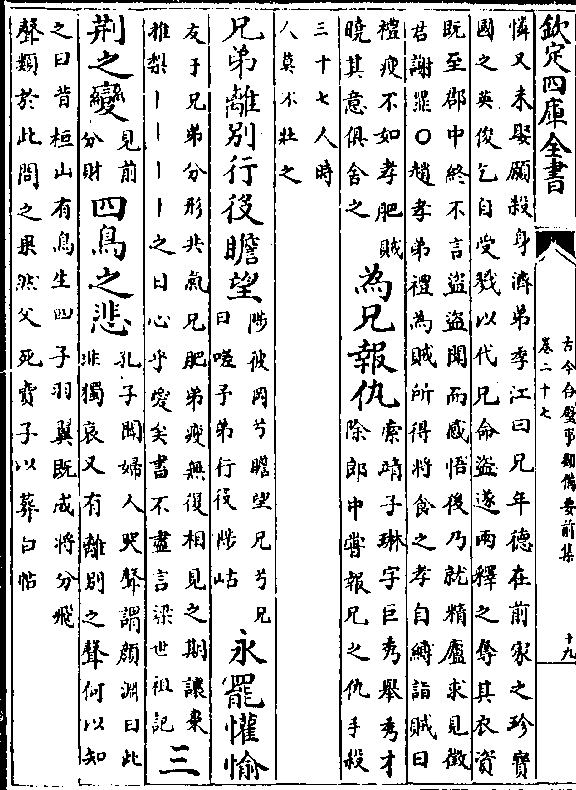 欽定四庫全書
古今合璧事類備要前集
卷二十七
十九
憐又未娶願殺身濟弟季江曰兄年德在前家之珍寳
國之英俊乞自受戮以代兄命盜遂兩釋之奪其衣資
既至郡中終不言盜盜聞而感悟後乃就精廬求見徵
君謝罪○趙孝弟禮為賊所得將食之孝自縛詣賊曰
禮瘦不如孝肥賊
曉其意俱舍之
為兄報仇
索靖子琳字巨秀舉秀才
除郎中嘗報兄之仇手殺
三十七人時
人莫不壯之
兄弟離別行役瞻望
陟彼岡兮瞻望兄兮兄
曰嗟予弟行役陟岵
永罷懽愉
友于兄弟分形共氣兄肥弟瘦無復相見之期讓棗
推棃丨丨丨丨之日心乎愛矣書不盡言梁世祖記
三
荆之變
見前
分財
四鳥之悲
孔子聞婦人哭聲謂顔淵曰此
非獨哀又有離别之聲何以知
之曰昔桓山有鳥生四子羽翼既成將分飛
聲類於此問之果然父死賣子以葬白帖